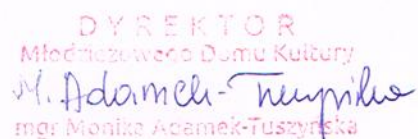 DYREKTOR
Młodzieżowego Domu Kultury
M. Adamek-Tuszyńska
mgr Monika Adamek-Tuszyńska